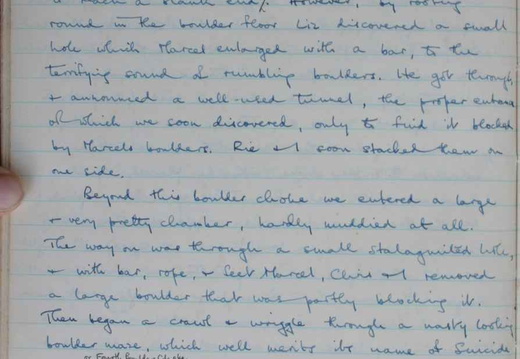 a death end). However, by rooting
round in the boulder floor Liz discovered a small
hole which Marcel enlarged with a bar, to the
terrifying sound of rumbling boulders. He got through
+ announced a well-used tunnel, the proper entrance
of which we soon discovered, only to find it blocked
by Marcels boulders. Ric + I soon stacked them on
one side.
Beyond this boulder choke we entered a large
+ very pretty chamber, hardly muddied at all.
The way on was through a small stalagmited hole,
+ with bar, rope, + feet Marcel, Chris + I removed
a large boulder that was partly blocking it.
Then began a crawl + wriggle through a nasty looking
boulder maze, which well merits its name of Suicide
or Fourth Boulder Choke